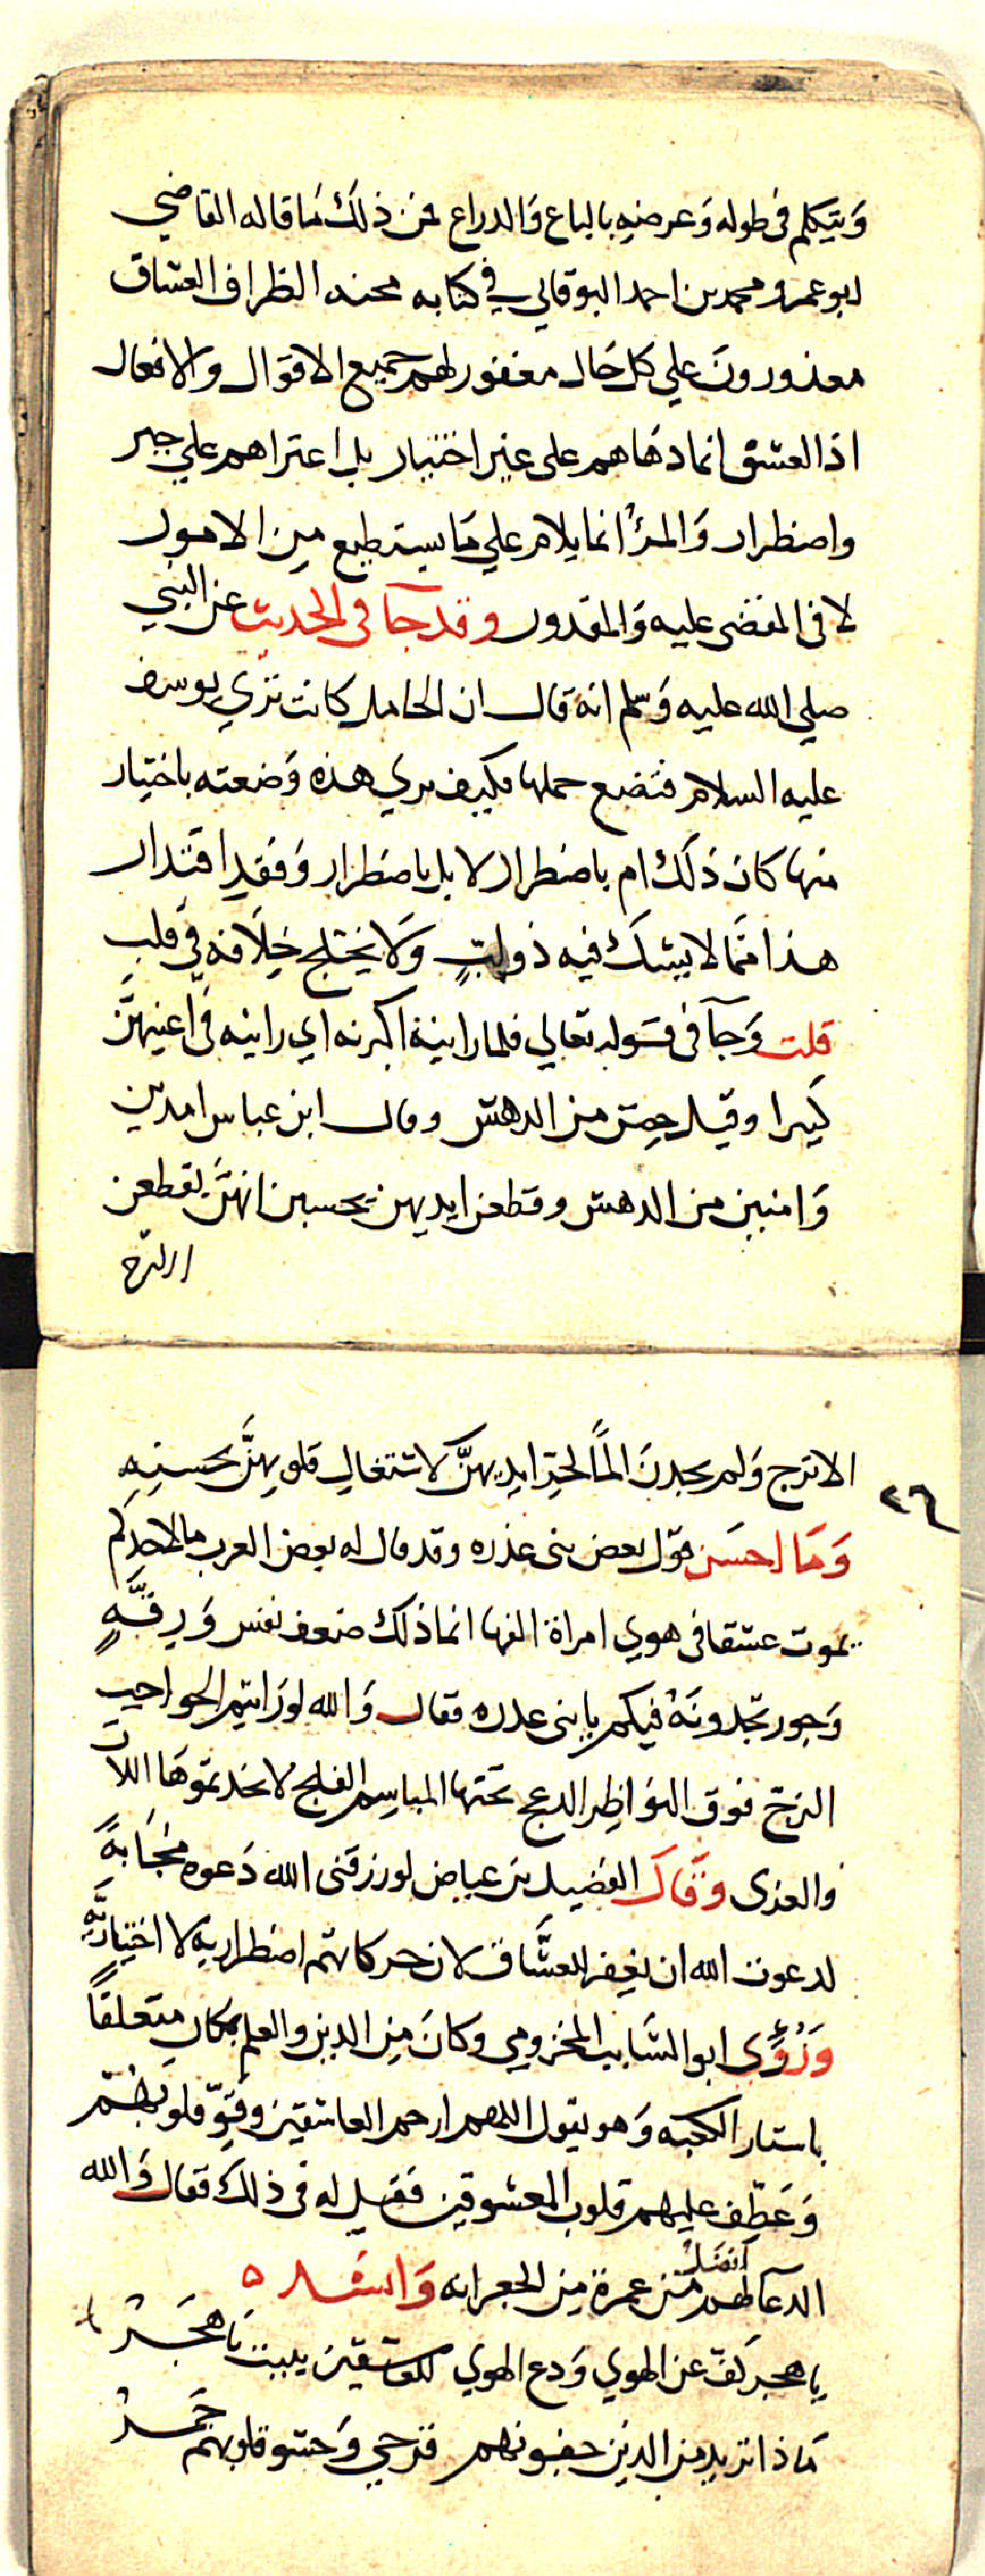 ويتكلم في طوله وعرضه بالباع والدراع فمن ذلك ما قاله القاضي
ابو عمرو محمد بن احمد البوقاني في كتابه محنه الظراف العشاق
معذورون علي كل حال مغفور لهم جميع الاقوال والافعال
اذ العشق انما دهاهم على غير اختيار بل اعتراهم علي جبر
واضطرار والمرء انما يلام علي ما يستطيع من الامور
لا في المقضى عليه والمقدور وقد جآ في الحديث عن النبي
صلي الله عليه وسلم انه قال ان الحامل كانت تري يوسف
عليه السلام فتضع حملها فكيف تري هذه وضعته باختيار
منها كان ذلك ام باضطرار لا بل باضطرار وفقد اقتدار
هذا مما لا يشك فيه ذولب ولا يختلج خلافه في قلب
قلت وجآ في قوله تعالي فلما راينه اكبرنه اي راينه في اعينهن
كبيرا وقيل حضن من الدهش وقال ابن عباس امدين
وامنين من الدهش وقطعن ايديهن يحسبن انهن يقطعن
الاترج
٢٦
الاترج ولم يجدن الما لحز ايديهن لاشتغال قلوبهن بحسنه
وما احسن قول بعض بنى عذره وقد قال له بعض العرب ما لاحدكم
يموت عشقا في هوي امراة الفها انما ذلك ضعف نفس ورقة
وخور تجدونه فيكم يا بنى عذره فقال والله لو رايتم الحواجب
الزج فوق النواظر الدعج تحتها المباسم الفلج لاتخذتموها اللات
والعزى وقال الفضيل بن عياض لو رزقنى الله دعوه مجابة
لدعوت الله ان يغفر للعشاق لان حركاتهم اضطراريه لا اختيارية
ورؤي ابو السايب المخزومي وكان من الدين والعلم بمكان متعلقا
باستار الكعبه وهو يقول اللهم ارحم العاشقين وقو قلوبهم
وعطف عليهم قلوب المعشوقين فقيل له في ذلك فقال والله
الدعآ لهم افضل من عمرة من الجعرانه وانشد
يا هجر كف عن الهوي ودع الهوي للعاشقين يطيب يا هجر
ماذا تريد من الدين جفونهم قرحي وحشو قلوبهم جمر